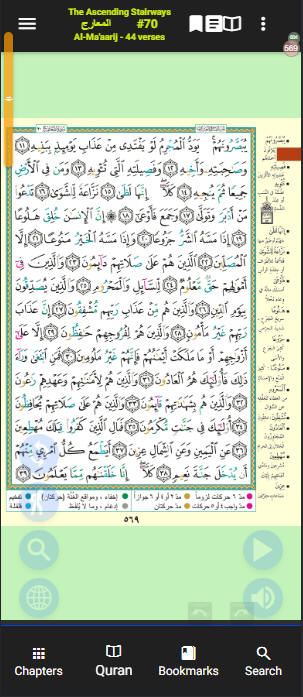 The Ascending Stairways
المعارج #70
Al-Ma'aarij - 44 verses
569
يُبَصَّرُونَهُمْ يَوَدُّ ٱلْمُجْرِمُ لَوْ يَفْتَدِى مِنْ عَذَابِ يَوْمِئِذٍۭ بِبَنِيهِ ١١
وَصَٰحِبَتِهِۦ وَأَخِيهِ ١٢ وَفَصِيلَتِهِ ٱلَّتِى تُـْٔوِيهِ ١٣ وَمَن فِى ٱلْأَرْضِ
جَمِيعًا ثُمَّ يُنجِيهِ ١٤ كَلَّآ إِنَّهَا لَظَىٰ ١٥ نَزَّاعَةً لِّلشَّوَىٰ ١٦ تَدْعُوا۟
مَنْ أَدْبَرَ وَتَوَلَّىٰ ١٧ وَجَمَعَ فَأَوْعَىٰٓ ١٨ إِنَّ ٱلْإِنسَٰنَ خُلِقَ هَلُوعًا
١٩ إِذَا مَسَّهُ ٱلشَّرُّ جَزُوعًا ٢٠ وَإِذَا مَسَّهُ ٱلْخَيْرُ مَنُوعًا ٢١ إِلَّا
ٱلْمُصَلِّينَ ٢٢ ٱلَّذِينَ هُمْ عَلَىٰ صَلَاتِهِمْ دَآئِمُونَ ٢٣ وَٱلَّذِينَ فِىٓ
أَمْوَٰلِهِمْ حَقٌّ مَّعْلُومٌ ٢٤ لِّلسَّآئِلِ وَٱلْمَحْرُومِ ٢٥ وَٱلَّذِينَ يُصَدِّقُونَ
بِيَوْمِ ٱلدِّينِ ٢٦ وَٱلَّذِينَ هُم مِّنْ عَذَابِ رَبِّهِم مُّشْفِقُونَ ٢٧ إِنَّ عَذَابَ
رَبِّهِمْ غَيْرُ مَأْمُونٍ ٢٨ وَٱلَّذِينَ هُمْ لِفُرُوجِهِمْ حَٰفِظُونَ ٢٩ إِلَّا عَلَىٰٓ
أَزْوَٰجِهِمْ أَوْ مَا مَلَكَتْ أَيْمَٰنُهُمْ فَإِنَّهُمْ غَيْرُ مَلُومِينَ ٣٠ فَمَنِ ٱبْتَغَىٰ وَرَآءَ
ذَٰلِكَ فَأُو۟لَٰٓئِكَ هُمُ ٱلْعَادُونَ ٣١ وَٱلَّذِينَ هُمْ لِأَمَٰنَٰتِهِمْ وَعَهْدِهِمْ رَٰعُونَ
٣٢ وَٱلَّذِينَ هُم بِشَهَٰدَٰتِهِمْ قَآئِمُونَ ٣٣ وَٱلَّذِينَ هُمْ عَلَىٰ صَلَاتِهِمْ يُحَافِظُونَ
٣٤ أُو۟لَٰٓئِكَ فِى جَنَّٰتٍ مُّكْرَمُونَ ٣٥ فَمَالِ ٱلَّذِينَ كَفَرُوا۟ قِبَلَكَ مُهْطِعِينَ
٣٦ عَنِ ٱلْيَمِينِ وَعَنِ ٱلشِّمَالِ عِزِينَ ٣٧ أَيَطْمَعُ كُلُّ ٱمْرِئٍ مِّنْهُمْ
أَن يُدْخَلَ جَنَّةَ نَعِيمٍ ٣٨ كَلَّآ إِنَّا خَلَقْنَٰهُم مِّمَّا يَعْلَمُونَ ٣٩
مدّ ٦ حركات لزوماً مدّ ٢ أو ٤ أو ٦ جوازاً إخفاء، ومواقع الغُنَّة (حركتان) تفخيم
مدّ واجب ٤ أو ٥ حركات مدّ حركتان إدغام، وما لا يُلفَظ قلقلة
٥٦٩
Chapters
Quran
Bookmarks
Search